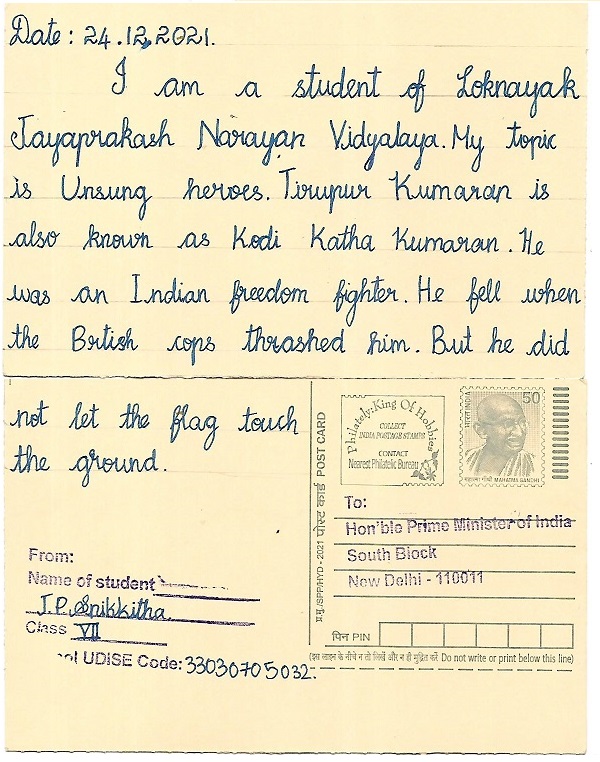 Date: 24.12.2021.
I am a student of Loknayak
Jayaprakash Narayan Vidyalaya. My topic
is Unsung heroes. Tirupur Kumaran is
also known as Kodi Katha Kumaran. He
was an Indian freedom fighter. He fell when
the British cops thrashed him. But he did
not let the flag touch
the ground.
From:
Name of student
J.P. Srikkitha.
Class VII
ol UDISE Code: 33030705032.
प्र.मु./SPP/HYD - 2021 पोस्ट कार्ड POST CARD
Philately: King Of Hobbies
COLLECT
INDIA POSTAGE STAMPS
CONTACT
Nearest Philatelic Bureau
भारत INDIA
50
महात्मा गाँधी MAHATMA GANDHI
To:
Hon'ble Prime Minister of India
South Block
New Delhi - 110011
पिन PIN
(इस लाइन के नीचे न तो लिखें और न ही मुद्रित करें Do not write or print below this line)